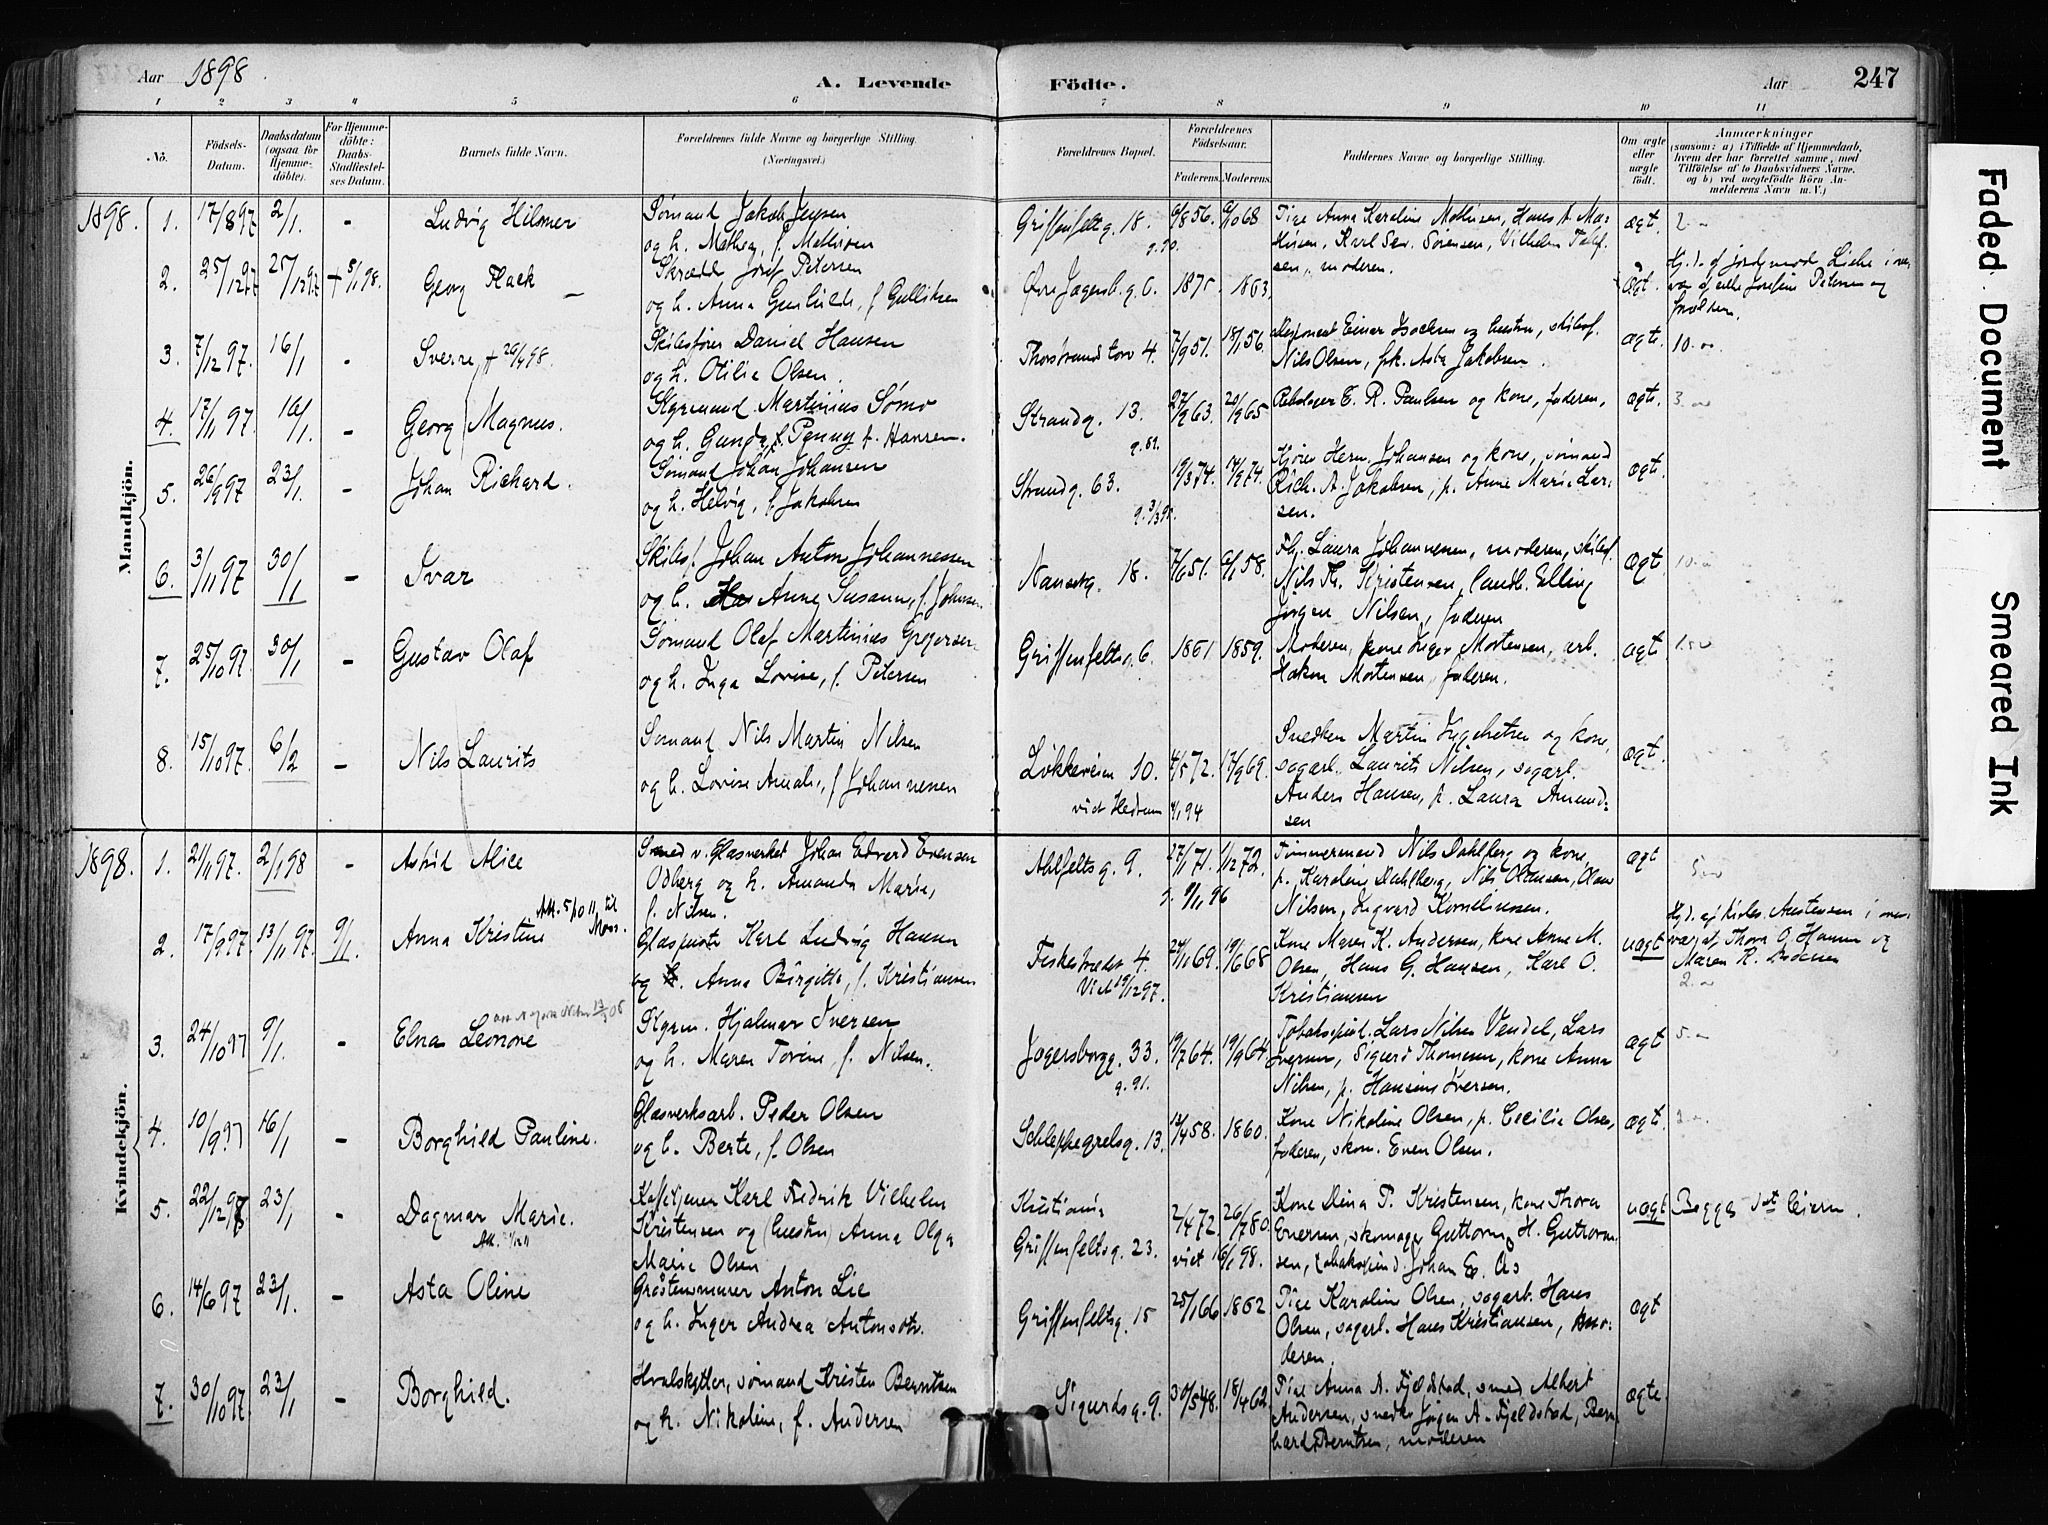 Aar 1898. A. Levende Födte. Aar 247
1 2 3 4 5 6 7 8 9 10 11
No. Födsels-Datum. Daabsdatum (ogsaa for Hjemmedöbte). For Hjemmedöbte: Daabs-Stadfæstelses Datum. Barnets fulde Navn. Forældrenes fulde Navne og borgerlige Stilling. (Næringsvei.) Forældrenes Bopæl. Forældrenes Födselsaar. Faderens. Moderens. Faddernes Navne og borgerlige Stilling. Om ægte eller uægte født. Anmærkninger (saasom: a) i Tilfælde af Hjemmedaab, hvem der har forrettet samme, med Tilföielse af to Daabsvidners Navne, og b) ved uægtefödte Börn Anmelderens Navn m. V.)
Mandkjön.
1898. 1. 17/8 97 2/1. - Ludvig Hilmer
Sømand Jakob Jensen
og h. Mathea, f. Mathisen
Griffenfeltsg. 18. g. 90.
Pige Anna Karoline Mathisen, Hans A. Mathisen, Karl Sev. Sørensen, Vilhelm
moderen.
ægt. 2.
2. 25/12 97 25/12 97 † 5/1 98. Georg Flack -
Skrædd. Josef Petersen
og h. Anna Gunhilde, f. Gulliksen
Øvre Jegersb. g. 6. 1875. 1863.
Ægt.
3. 7/12 97. 16/1 - Sverre, † 26/4 98.
Skibsfører Daniel Hansen
og h. Otilie Olsen.
Thorstrand torv 4. 7/9 51. 18/1 56
Einar Isachsen og hustru, skibsf.
Nils Olsen, frk. Asta Jakobsen.
ægte. 10.
4. 17/11 97. 16/1. - Georg Magnus.
Styrmand Martinius Sømo
og h. Gunda, f. Hansen.
Strandg. 13. g. 89. 27/9 63. 20/9 65
Rebslager E. R. Paulsen og kone, faderen,
ægte. 3.
5. 26/9 97 23/1. - Johan Richard.
Sømand Johan Johansen
og h. Helvig, f. Jakobsen
Strandg. 63. g. 3/3 95. 19/3 74. 14/9 74.
Kjører Herm. Johansen og kone, sømand
Rich. A. Jakobsen, p. Anne Marie Larsen.
ægt.
6. 3/11 97 30/1 - Ivar
Skibsf. Johan Anton Johannessen
og h. Anne Susanne, f. Johnsen
Nansetg. 18. 7/6 51. 6/1 58.
Laura Johannessen, moderen, skibsf.
Nils Th. Kristensen, landh. Elling
Jørgen Nilsen, faderen
Ægt. 10.
7. 25/10 97. 30/1 - Gustav Olaf
Sømand Olaf Martinius Gregersen
og h. Inga Lovise, f. Petersen
Griffenfeltsg. 6. 1861 1859.
Moderen, kone Inger Mortensen, arb.
Hakon Mortensen, faderen.
ægt.
8. 15/10 97. 6/2 - Nils Laurits
Sømand Nils Martin Nilsen
og h. Lovise Amali, f. Johannessen
Løkkeveien 10. viet Hedrum 4/1 94 4/5 72. 17/9 69.
Snedker Martin Ingebretsen og kone,
sagarb. Laurits Nilsen, sagarb.
Anders Hansen, p. Laura Amundsen
ægt.
Kvindekjön.
1898. 1. 21/11 97. 2/1 98 - Astrid Alice
Smed v. Glasverket Johan Edvard Evensen
Odberg og h. Amanda Marie,
f. Nilsen.
Ahlfeltsg. 9. 27/1 71. 1/12 72.
Tømmermand Nils Dahlberg og kone,
p. Karoline Dahlberg, Nils Olausen, Olaus
Nilsen, Ingvard Kornelius­sen.
Ægt
2. 17/9 97. 13/11 97. 9/1. Anna Kristine
Glaspuster Karl Ludvig Hansen
og Anna Birgitte, f. Kristiansen
Fiskestrædet 4. Viet 19/12 97. 27/1 69. 19/6 68
Kone Maren K. Andersen, kone Anne M.
Olsen, Hans G. Hansen, Karl O.
Kristiansen
uægt
3. 24/10 97 9/1. - Elna Leonore
Styrm. Hjalmar Iversen
og h. Maren Tovine, f. Nilsen.
Jegersborgg. 33. g. 91. 19/7 64. 19/9 64.
Tobakspind. Lars Nilsen Vendel, Lars
Iversen, Sigurd Thomesen, kone Anna
Nilsen, p. Hansine Iversen.
ægt 5.
4. 10/9 97 16/1 - Borghild Pauline.
Glasverksarb. Peder Olsen
og h. Berte, f. Olsen
Schleppegrelsg. 13. 12/4 58. 1860.
Kone Nikoline Olsen, p. Cecilie Olsen,
faderen, skom. Even Olsen.
ægt.
5. 22/12 97 23/1 - Dagmar Marie.
Karl Fredrik Vilhelm
Kristensen og (hustru) Anna Olga
Marie Olsen
Kristiania
Griffenfeltsg. 23. 2/4 72. 26/7 80. viet 16/1 98.
Kone Dina P. Kristensen, kone Thora
Evensen, skomager Guttorm H. Guttormsen, tobakspind. Johan E. Aas
uægt Begges 1st Leiern.
6. 14/6 97 23/1. - Asta Oline
Gråstensmurer Anton Lie
og h. Inger Andrea Antonsdtr.
Griffenfeltsg. 15 25/1 66 1862
Pige Karoline Olsen, sagarb. Hans
Olsen, sagarb. Hans Kristiansen, moderen.
ægt
7. 30/10 97. 23/1 - Borghild.
Hvalskytter, sømand Kristen Berntsen
og h. Nikoline, f. Andersen
Sigurdsg. 9. 30/5 48. 18/4 62.
Pige Anna A. Fjeldstad, smed Albert
Andersen, snedker Jørgen A. Fjeldstad, Bernhard Berntsen, moderen
ægte.
Faded Document
Smeared Ink